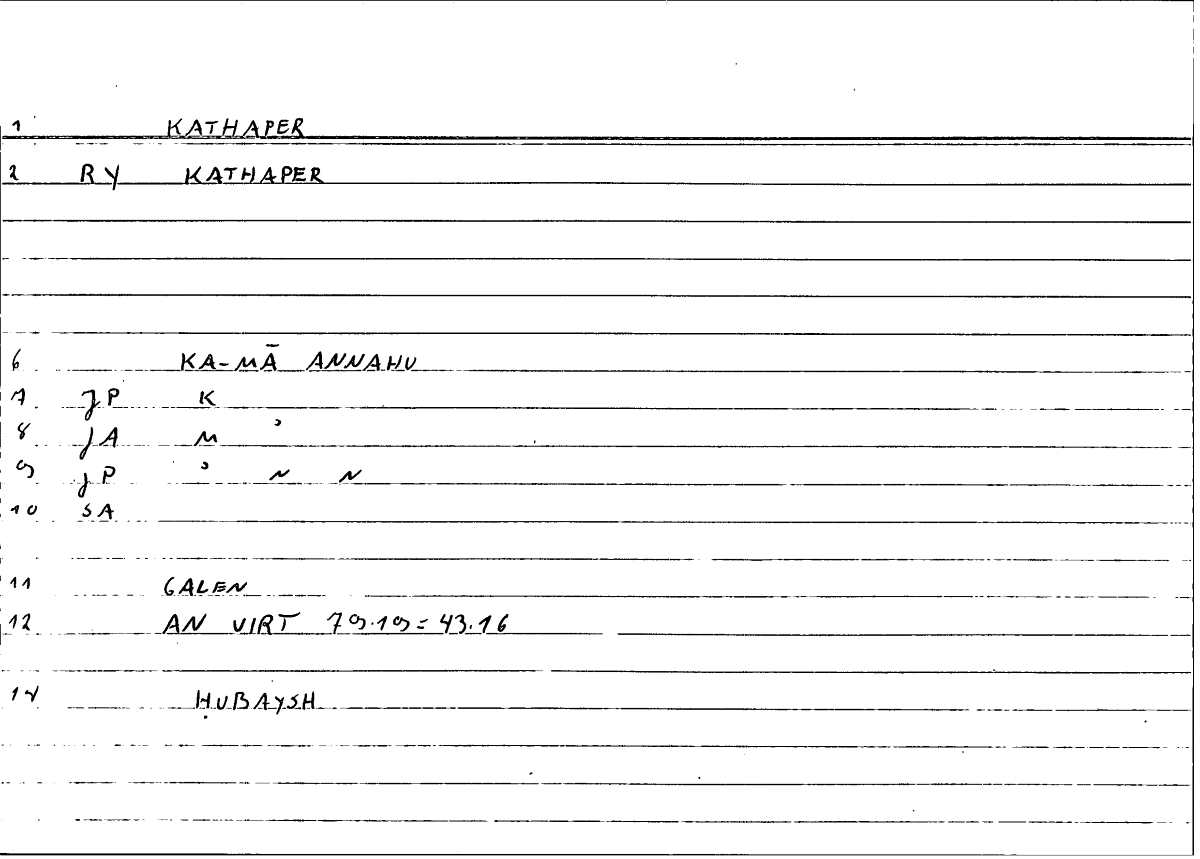 1 KATHAPER
2 RY KATHAPER
6 KA-MĀ ANNAHU
7 JP K
8 JA M ʾ
9 JP ʾ N N
10 SA
11 GALEN
12 AN VIRT 79.19=43.16
14 ḤUBAYSH